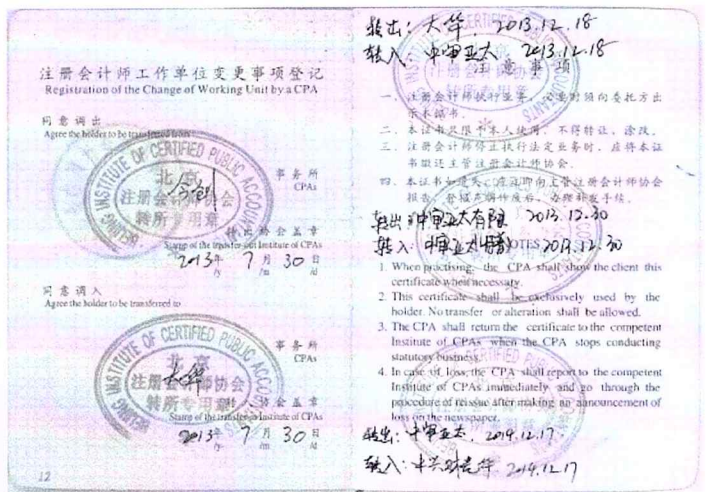 注册会计师工作单位变更事项登记
Registration of the Change of Working Unit by a CPA
同意调出
Agree the holder to be transferred from
BEIJING INSTITUTE OF CERTIFIED PUBLIC ACCOUNTANTS
北京
注册会计师协会
转所专用章
事务所
CPAs
转出协会盖章
Stamp of the transfer-out Institute of CPAs
2013年 7月 30日
/y /m /d
同意调入
Agree the holder to be transferred to
BEIJING INSTITUTE OF CERTIFIED PUBLIC ACCOUNTANTS
北京
大华
注册会计师协会
转所专用章
事务所
CPAs
转入协会盖章
Stamp of the transfer-in Institute of CPAs
2013年 7月 30日
/y /m /d
12
转出: 大华 2013.12.18
转入: 中审亚太 2013.12.18
注意事项
一、注册会计师执行业务,必要时须向委托方出
示本证书。
二、本证书只限于本人使用,不得转让、涂改。
三、注册会计师停止执行法定业务时,应将本证
书缴还主管注册会计师协会。
四、本证书如遗失,应立即向主管注册会计师协会
报告,登报声明作废后,办理补发手续。
转出: 中审亚太有限 2013.12.30
转入: 中审亚太 2013.12.30
NOTES
1. When practising, the CPA shall show the client this
certificate when necessary.
2. This certificate shall be exclusively used by the
holder. No transfer or alteration shall be allowed.
3. The CPA shall return the certificate to the competent
Institute of CPAs when the CPA stops conducting
statutory business.
4. In case of loss, the CPA shall report to the competent
Institute of CPAs immediately and go through the
procedure of reissue after making an announcement of
loss on the newspaper.
转出: 中审亚太. 2014.12.17.
转入: 中兴财光华 2014.12.17